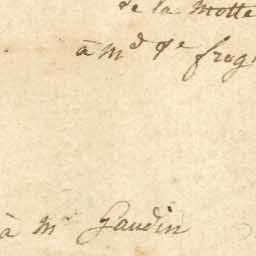 de la Motte
à md de frog
à mr Gaudin